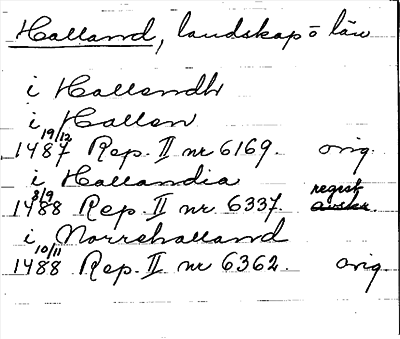 Halland, landskap o län
i Hallandh
i Hallen
19/12
1487 Rep. II nr 6169. orig.
i Hallandia
8/9 regist
1488 Rep. II nr 6337. avskr.
i Norrehalland
10/11
1488 Rep. II nr 6362. orig.